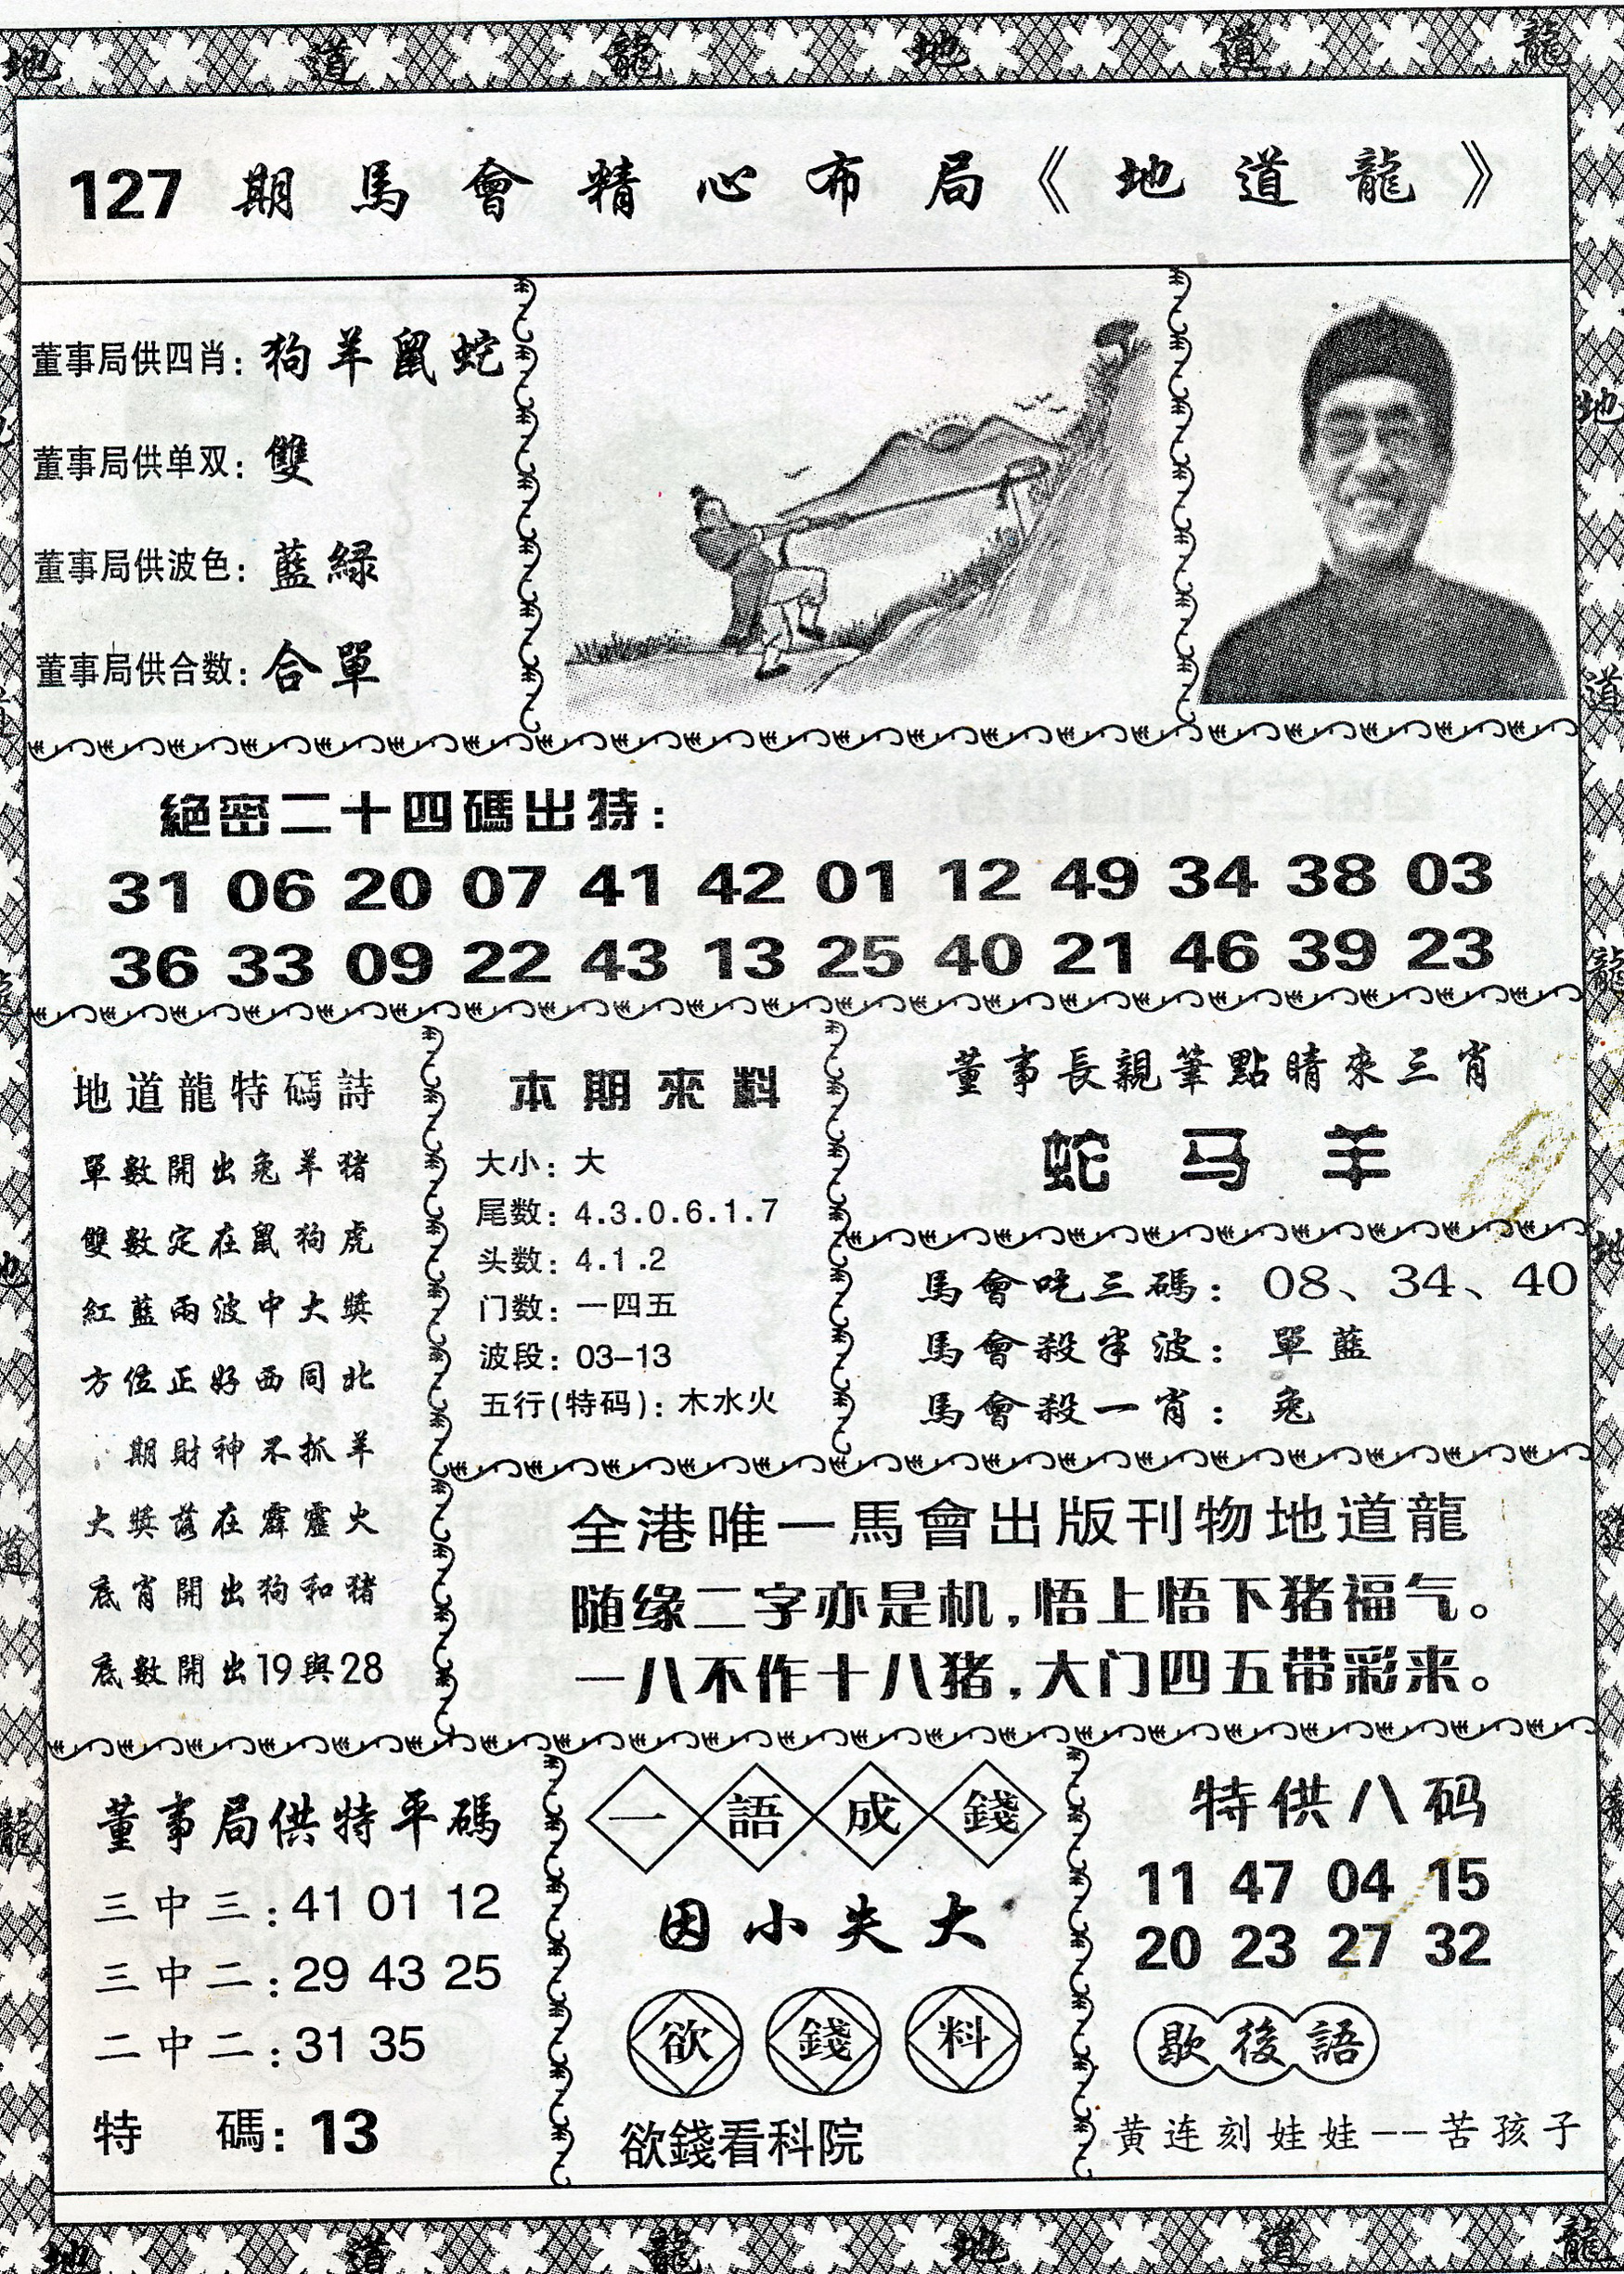 地 道 龍 地 道 龍
127 期 馬 會 精 心 布 局 《 地 道 龍 》
董事局供四肖: 狗羊鼠蛇
董事局供单双: 雙
董事局供波色: 藍綠
董事局供合数: 合單
絕密二十四碼出特:
31 06 20 07 41 42 01 12 49 34 38 03
36 33 09 22 43 13 25 40 21 46 39 23
地道龍特碼詩
單數開出兔羊猪
雙數定在鼠狗虎
紅藍兩波中大獎
方位正好西同北
期財神不抓羊
大獎落在霹靂火
底肖開出狗和猪
底數開出19與28
本期來料
大小: 大
尾数: 4.3.0.6.1.7
头数: 4.1.2
门数: 一四五
波段: 03-13
五行(特码): 木水火
董事長親筆點睛來三肖
蛇 马 羊
馬會吃三碼: 08、34、40
馬會殺半波: 單藍
馬會殺一肖: 兔
全港唯一馬會出版刊物地道龍
随缘二字亦是机,悟上悟下猪福气。
一八不作十八猪,大门四五带彩来。
董事局供特平碼
三中三:41 01 12
三中二:29 43 25
二中二:31 35
特 碼: 13
一語成錢
因小失大
欲錢料
欲錢看科院
特供八码
11 47 04 15
20 23 27 32
歇後語
黄连刻娃娃——苦孩子
地 道 龍 地 道 龍